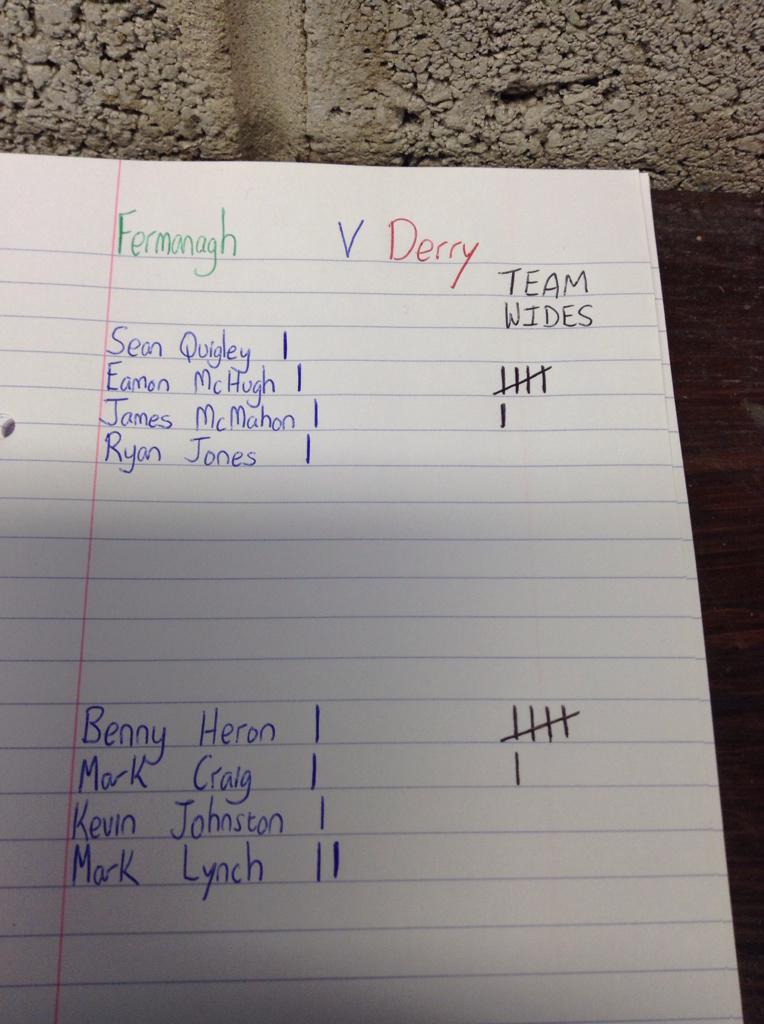 Fermanagh V Derry
TEAM
WIDES
Sean Quigley |
Eamon McHugh | 卌
James McMahon | |
Ryan Jones |
Benny Heron | 卌
Mark Craig | |
Kevin Johnston |
Mark Lynch ||